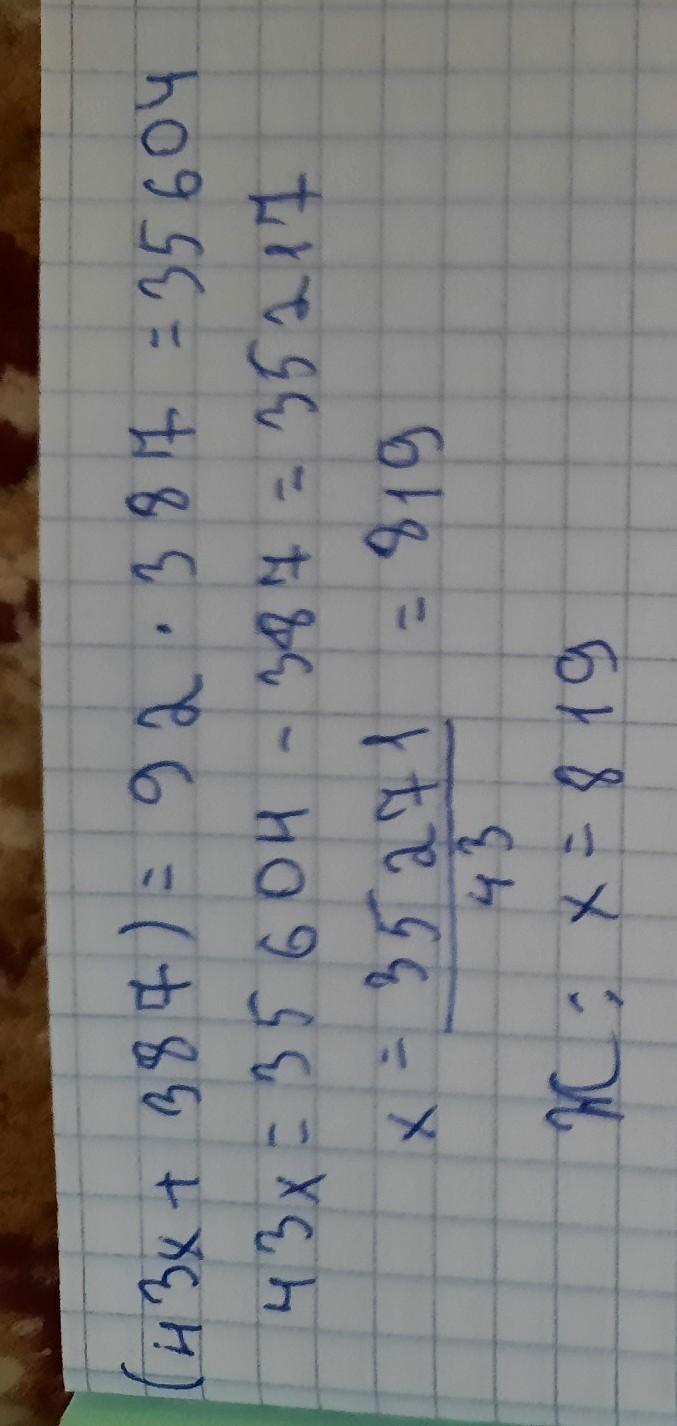 (43x + 387) = 92 · 387 = 35604
43x = 35604 - 387 = 35217
x = 35271/43 = 819
Ж: x = 819